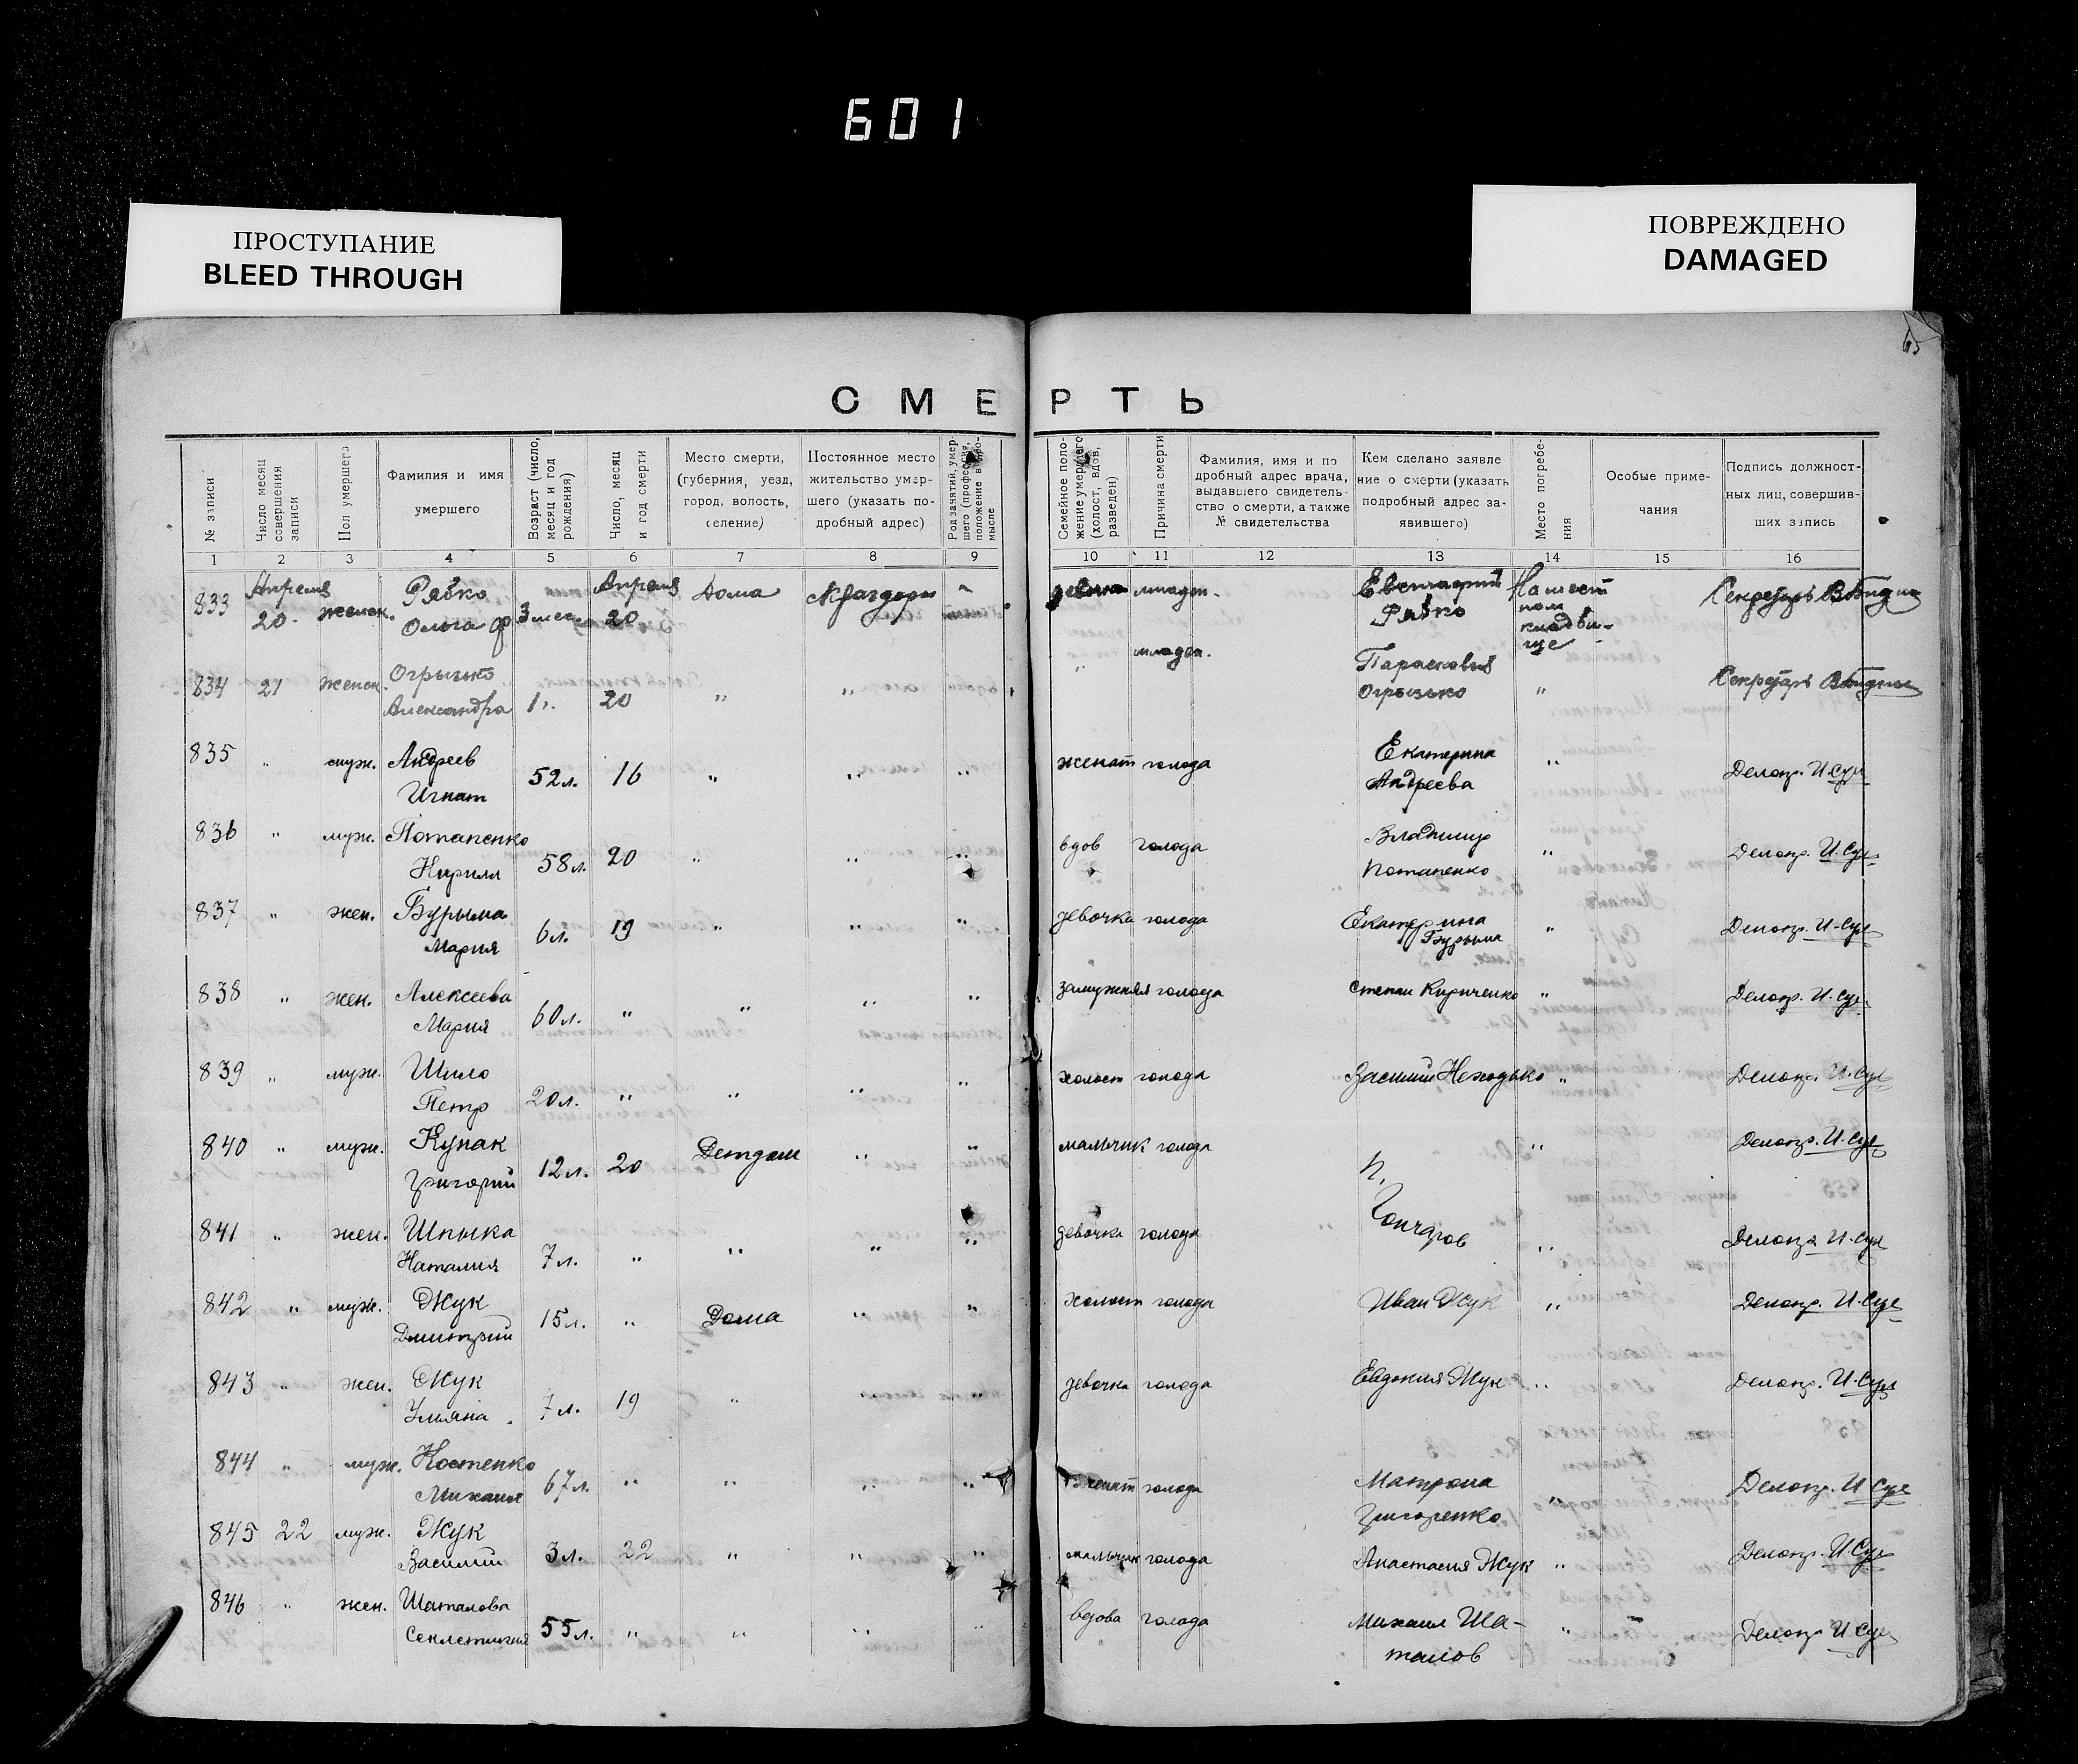 601
ПРОСТУПАНИЕ
BLEED THROUGH
ПОВРЕЖДЕНО
DAMAGED
65
СМЕРТЬ
№ записи
Число месяц совершения записи
Пол умершего
Фамилия и имя умершего
Возраст (число, месяц и год рождения)
Число, месяц и год смерти
Место смерти, (губерния, уезд, город, волость, селение)
Постоянное место жительство умершего (указать подробный адрес)
Род занятий, умершего (профессия, положение в промысле
Семейное положение умершего (холост, вдов, разведен)
Причина смерти
Фамилия, имя и подробный адрес врача, выдавшего свидетельство о смерти, а также № свидетельства
Кем сделано заявление о смерти (указать подробный адрес заявившего)
Место погребения
Особые примечания
Подпись должностных лиц, совершивших запись
1 2 3 4 5 6 7 8 9 10 11 12 13 14 15 16
833 Апреля 20 женск. Рябко Ольга Ф 3 мес. Апреля 20 Дома младен. Рябко На мест ном кладби- ще Секретарь
834 21 женск. Огрызко Александра 1 " 20 " " " младен. Парасковия Огрызько " Секретарь
835 " муж. Андреев Игнат 52 л. 16 " " " женат голода Екатерина Андреева " Делопр. И. Сух
836 " муж. Потапенко Кирилл 58 л. 20 " " " вдов голода Владимир Потапенко " Делопр. И. Сух
837 " жен. Бурыма Мария 6 л. 19 " " " девочка голода Екатерина Бурыма " Делопр. И. Сух
838 " жен. Алексеева Мария 60 л. " " " " замужняя голода Степан Кириченко " Делопр. И. Сух
839 " муж. Шило Петр 20 л. " " " " холост голода Василий Неходько " Делопр. И. Сух
840 " муж. Купак Григорий 12 л. 20 Детдом " " мальчик голода П. Гончаров " Делопр. И. Сух
841 " жен. Шпыка Наталия 7 л. " " " " девочка голода " Делопр. И. Сух
842 " муж. Жук Дмитрий 15 л. " Дома " " холост голода Иван Жук " Делопр. И. Сух
843 " жен. Жук Ульяна 7 л. 19 " " " девочка голода Евдокия Жук " Делопр. И. Сух
844 " муж. Костенко Михаил 67 л. " " " " женат голода Матрона Григоренко " Делопр. И. Сух
845 22 муж. Жук Василий 3 л. 22 " " " мальчик голода Анастасия Жук " Делопр. И. Сух
846 " жен. Шаталова Секлетикия 55 л. " " " " вдова голода Михаил Ша- талов " Делопр. И. Сух